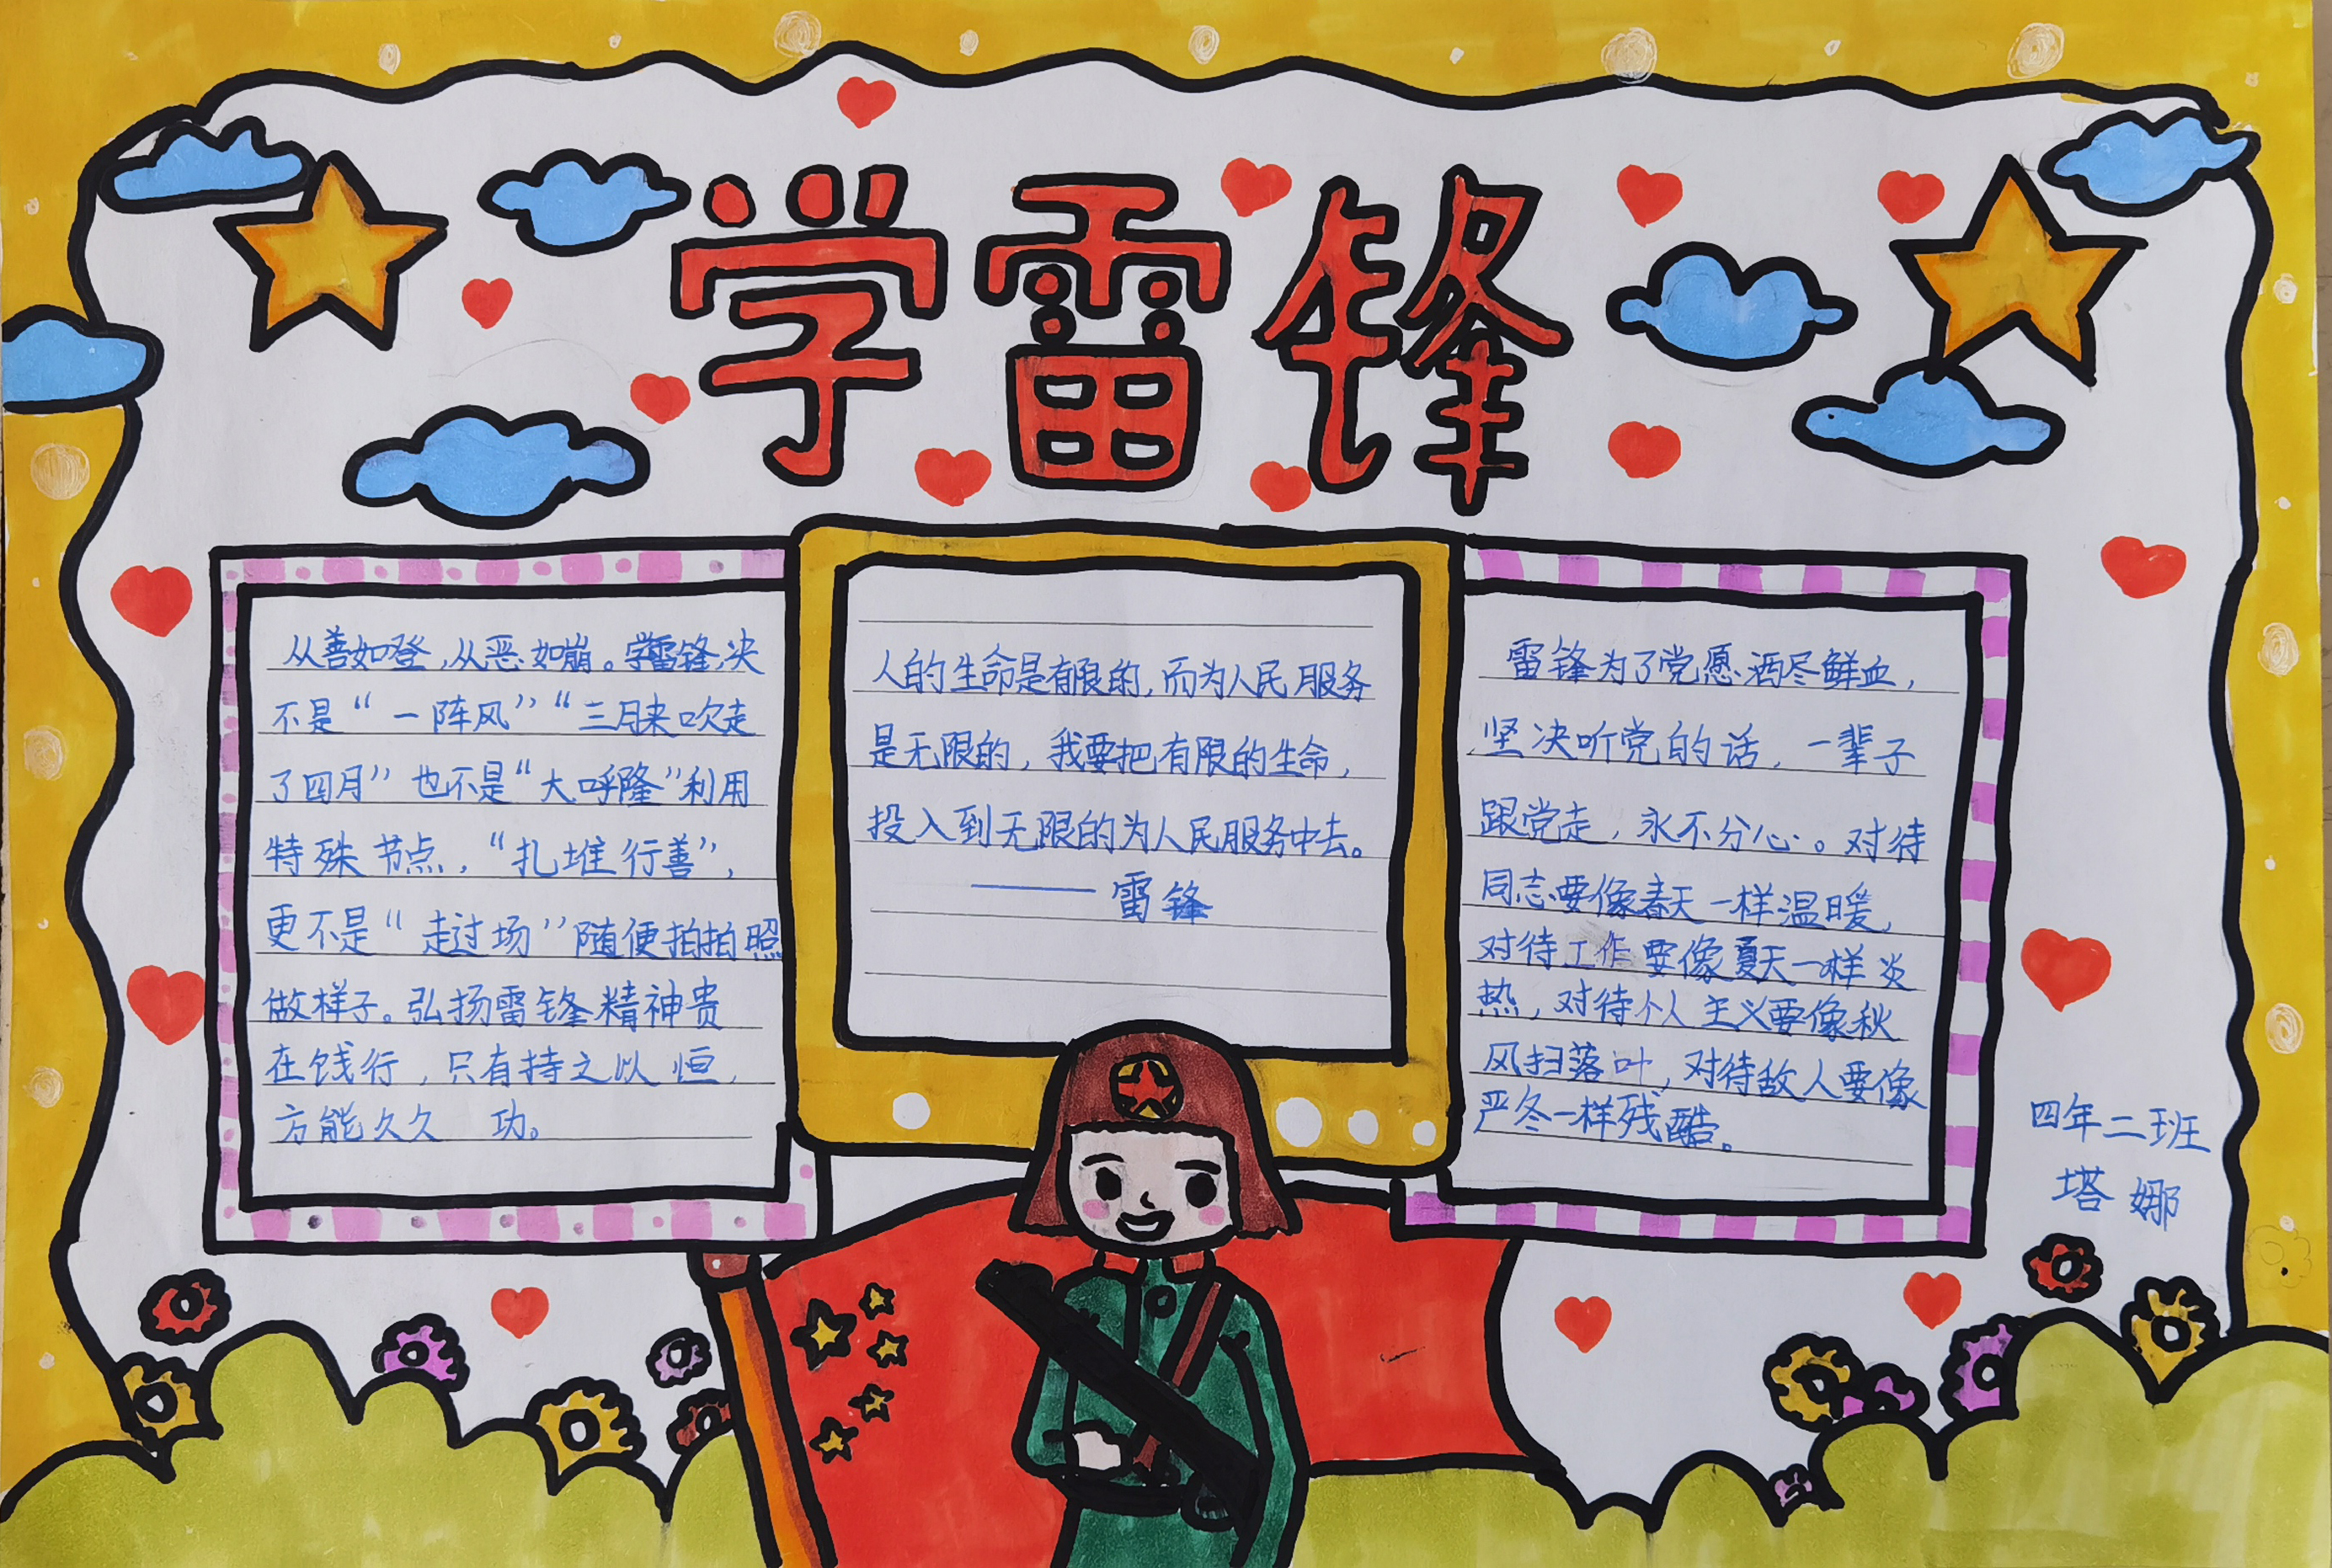 学雷锋
从善如登,从恶如崩。学雷锋,决
不是“一阵风”“三月来吹走
了四月”也不是“大呼隆”利用
特殊节点,“扎堆行善”,
更不是“走过场”随便拍拍照
做样子。弘扬雷锋精神贵
在饯行,只有持之以恒,
方能久久 功。
人的生命是有限的,而为人民服务
是无限的,我要把有限的生命,
投入到无限的为人民服务中去。
——雷锋
雷锋为了党愿洒尽鲜血,
坚决听党的话,一辈子
跟党走,永不分心。对待
同志要像春天一样温暖,
对待工作要像夏天一样炎
热,对待个人主义要像秋
风扫落叶,对待敌人要像
严冬一样残酷。
四年二班
塔娜